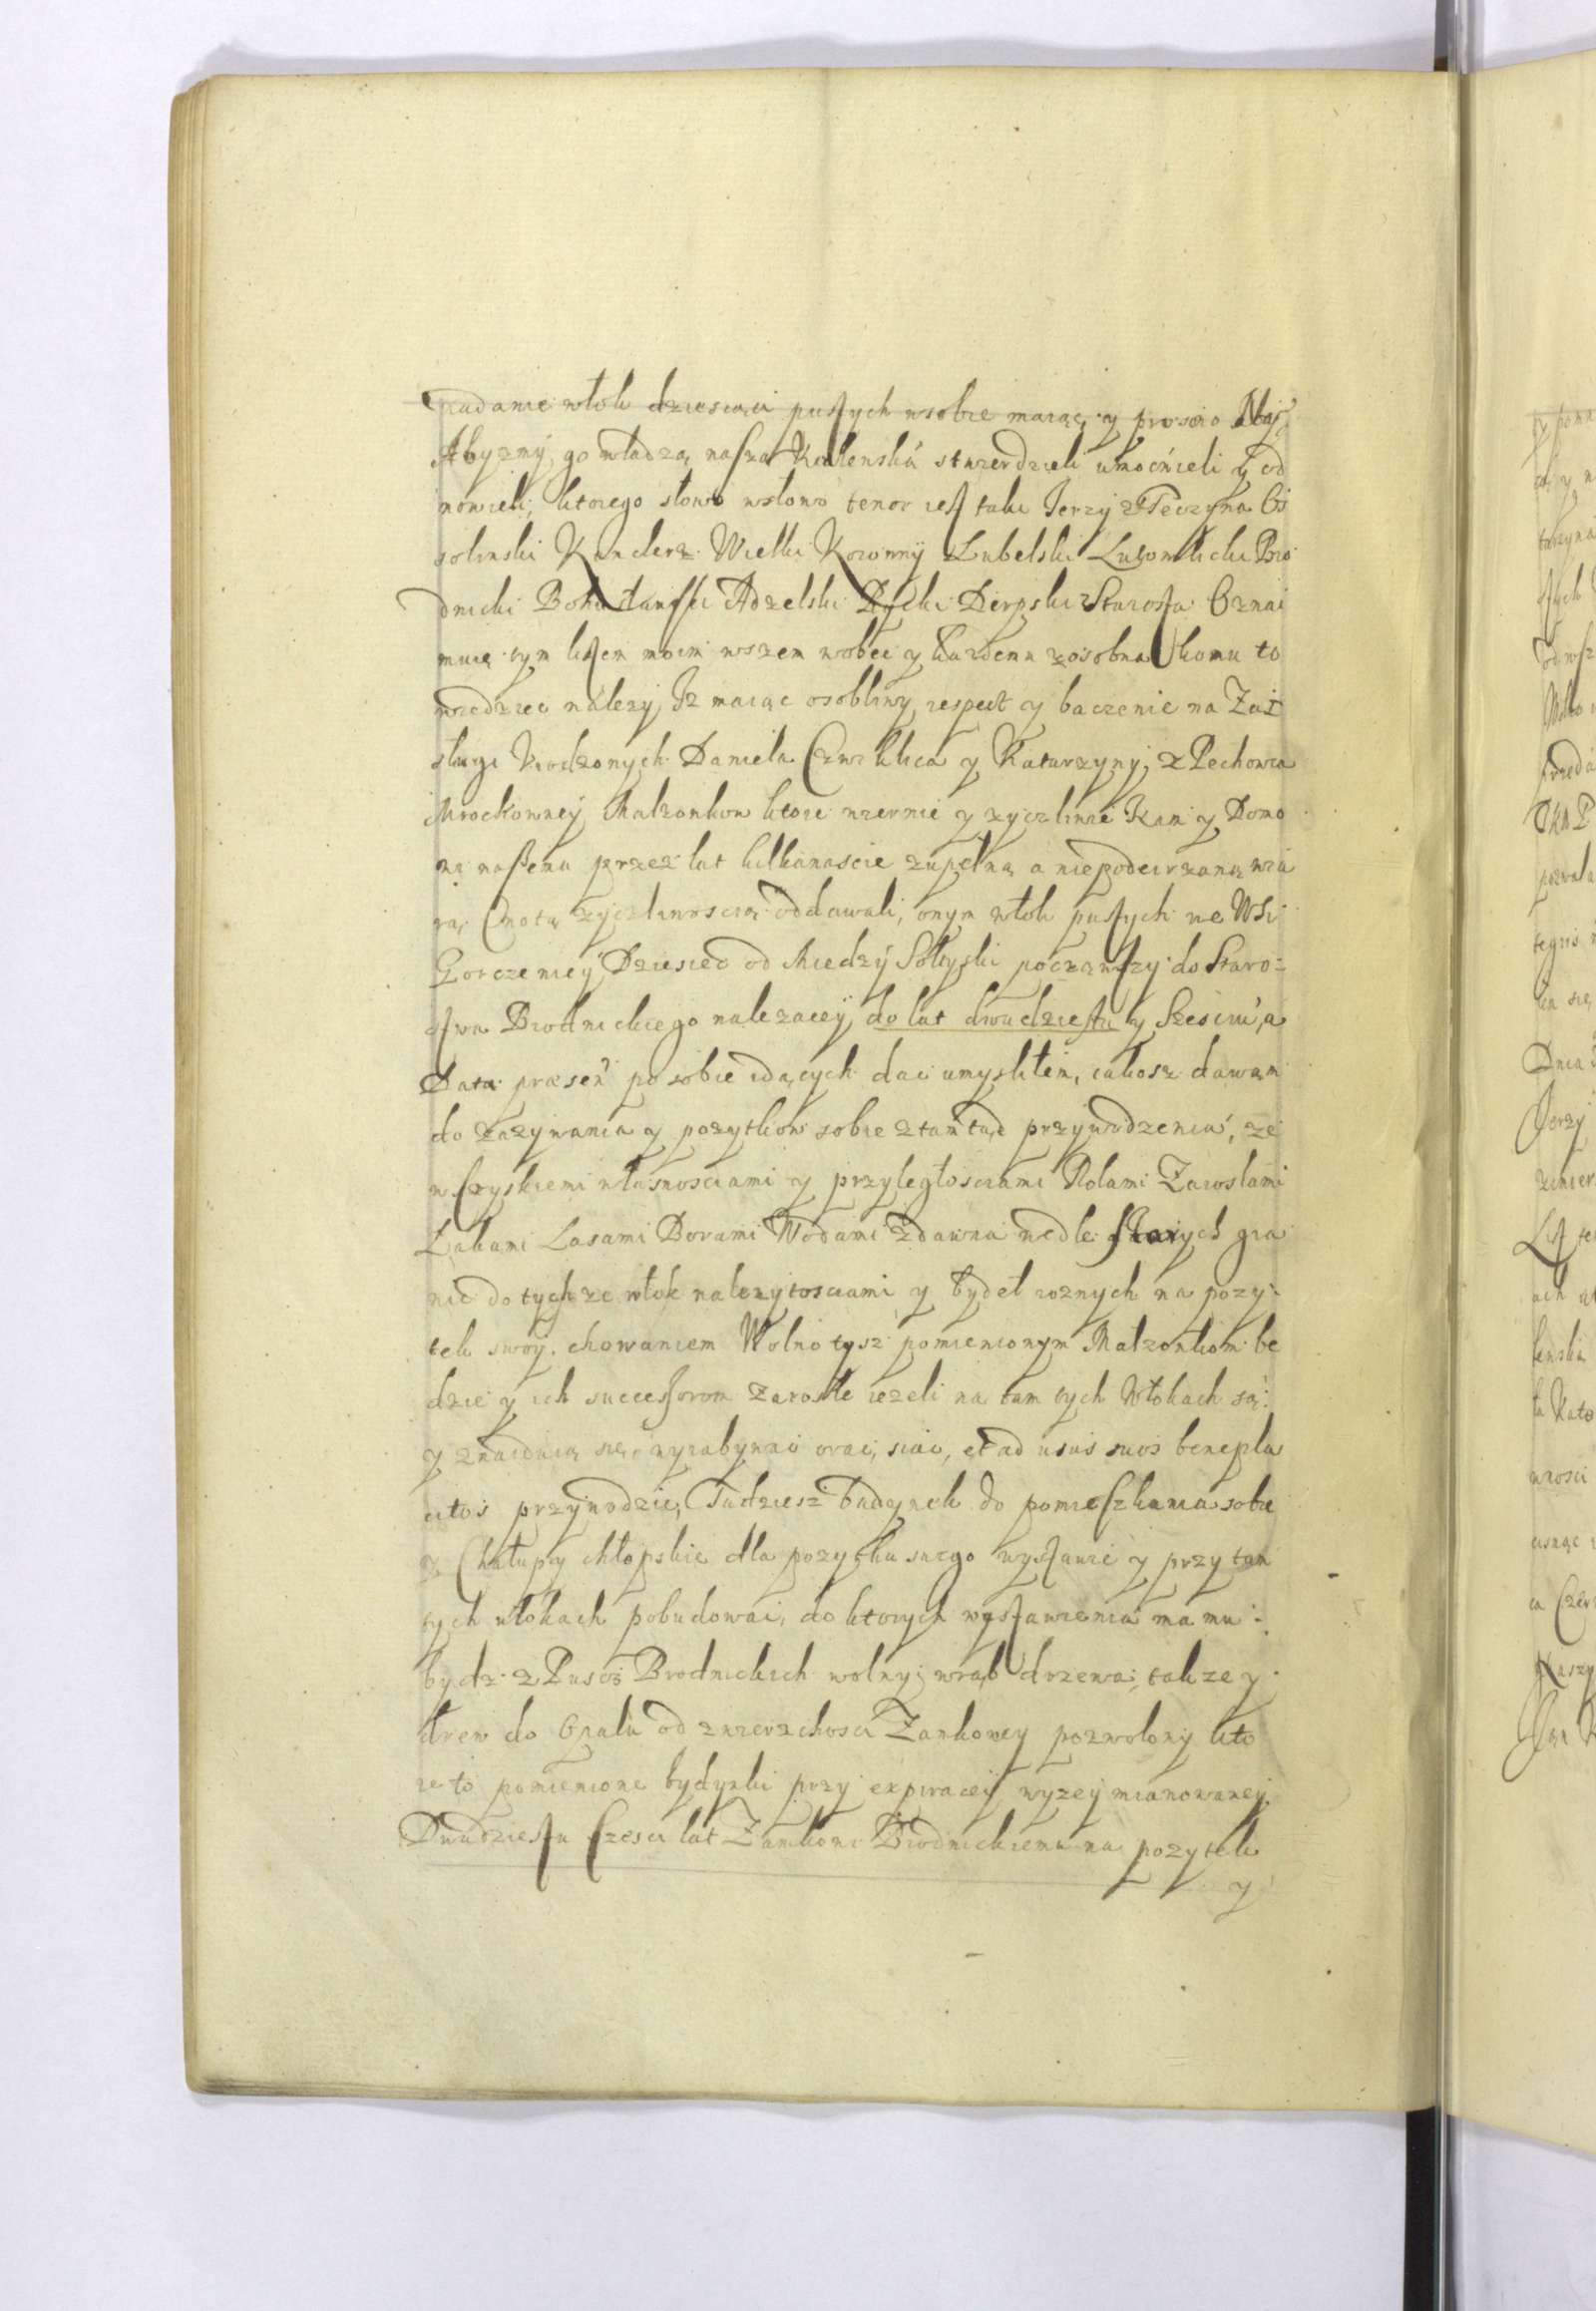 nadanie włok dziesiąci pustych wsobie maiąc, y proszono Nas
Abyzmy go władzą naszą Krolenską stwierdzieli umocnieli y od
nowieli, ktorego słowo wsłowo tenor iest taki Jerzy z Teczyna Os
solinski Kanclerz Wielki Koronny Lubelski Lubomlicki Bro
dnicki Bohuslauski Adzelski Dycki Derpski Starosta Oznai
muię tym listem moim wszem wobec y kazdemu zosobna komu to
wiedziec nalezy, Iz maiąc osobliwy respect y baczenie na Zaź
sługi Urodzonych Daniela Czwiklica y Katarzyny z Pechowca
Mrockowney Małzonkow ktore wiernie y zyczliwie Nam y Domo
wi naszemu przez lat kilkanascie zupełną a niepodeirzaną wia
rą Cnotą zyczliwoscią oddawali, onym włok pustych we Wsi
Gorczenicy Dziesiec od Miedzy Sołtyski począwszy do Staro=
stwa Brodnickiego nalezącey do lat dwudziestu y Szesciu, a
Data præsen po sobie idących dac umyslilem, iakosz dawam
do zazywania y pozytkow sobie ztamtąd przywodzenia, ze
wszyskiemi własnosciami y przyległosciami Rolami Zaroslami
Łąkami Lasami Borami Wodami zdawna wedle starych gra
nic do tychze włok nalezytosciami y bydeł roznych na pozy=
tek swoy chowaniem Wolno tysz pomienionym Małzonkom be
dzie y ich successorom Zarosle iezeli na tam tych Włokach są
y znaiduią się wyrabywac orac, siac, et ad usus suos benepla
citos przywodzic, Tudziesz budynek do pomieszkania sobie
y Chałupy chłopskie dla pozytku swego wystawic y przy tam
tych włokach pobudowac, do ktorych wystawienia ma mu
bydz z Pusczi Brodnickich wolny wrąb drzewa, takze y
drew do Opalu od zwierzchosci Zamkowey pozwolony kto
re to pomienione bydynki przy expiracey wyzey mianowaney
Dwudziestu szesci lat Zamkowi Brodnickiemu na pozytek
y